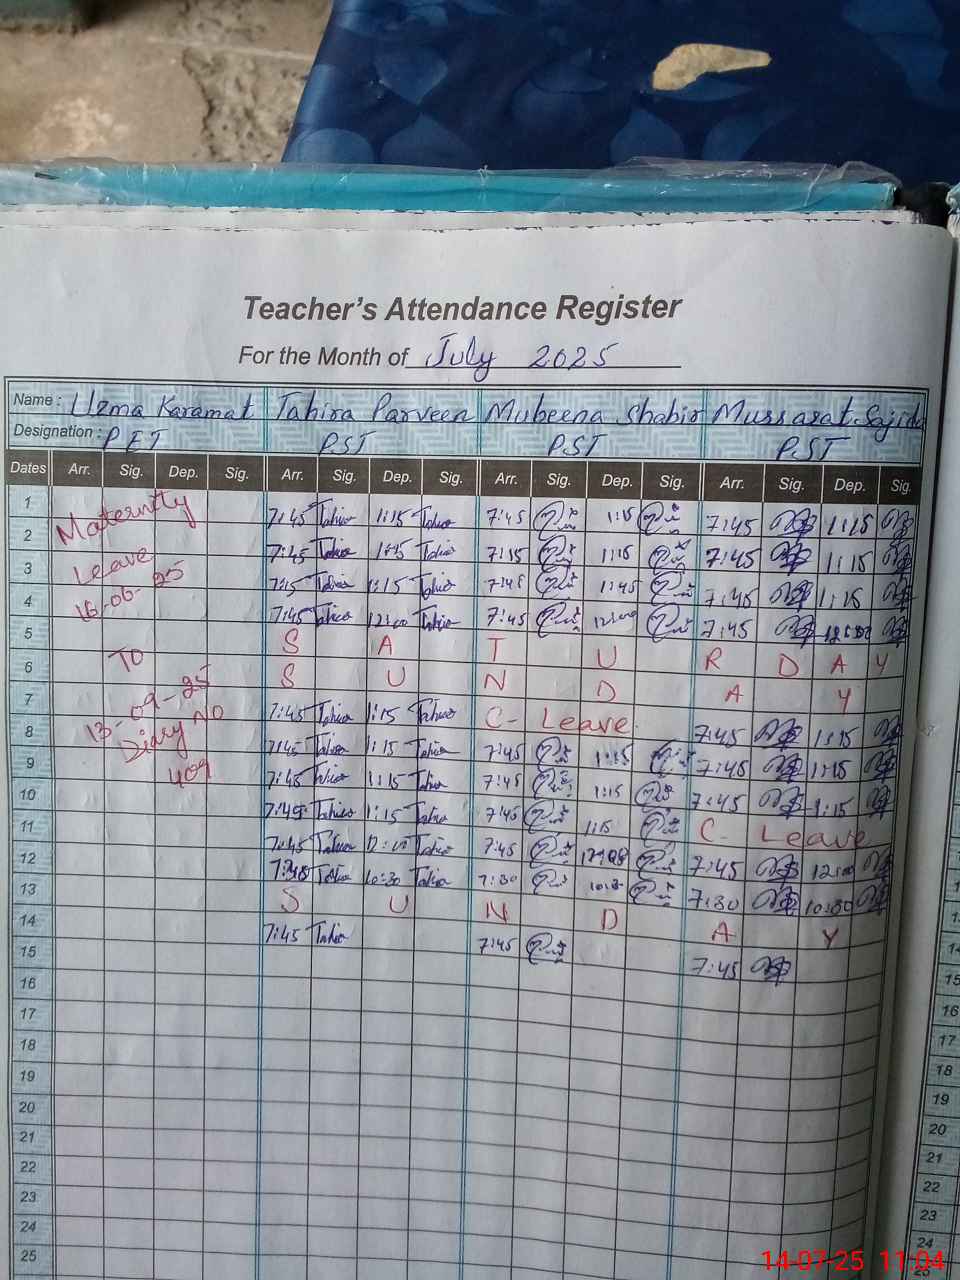 Teacher's Attendance Register
For the Month of July 2025
Name : Uzma Karamat Tahira Parveen Mubeena Shabir Mussarat Sajida
Designation : PET PST PST PST
Dates Arr. Sig. Dep. Sig. Arr. Sig. Dep. Sig. Arr. Sig. Dep. Sig. Arr. Sig. Dep. Sig.
1 Maternity 7:45 Tahira 1:15 Tahira 7:45 1:15 7:45 1:15
2 Leave 7:45 Tahira 1:15 Tahira 7:15 1:15 7:45 1:15
3 16-06-25 7:15 Tahira 1:15 Tahira 7:45 1:45 7:45 1:15
4 7:45 Tahira 12:00 Tahira 7:45 12:00 7:45 12:00
5 TO S A T U R D A Y
6 S U N D A Y
7 13-09-25 7:45 Tahira 1:15 Tahira C- Leave. 7:45 1:15
8 Diary NO 7:45 Tahira 1:15 Tahira 7:45 1:15 7:45 1:15
9 409 7:45 Tahira 1:15 Tahira 7:45 1:15 7:45 1:15
10 7:45 Tahira 1:15 Tahira 7:45 1:15 C- Leave
11 7:45 Tahira 12:00 Tahira 7:45 12:00 7:45 12:00
12 7:45 Tahira 10:30 Tahira 7:30 10:30 7:30 10:30
13 S U N D A Y
14 7:45 Tahira 7:45 7:45
15
16
17
18
19
20
21
22
23
24
25
15
16
17
18
19
20
21
22
23
24
14-07-25 11:04